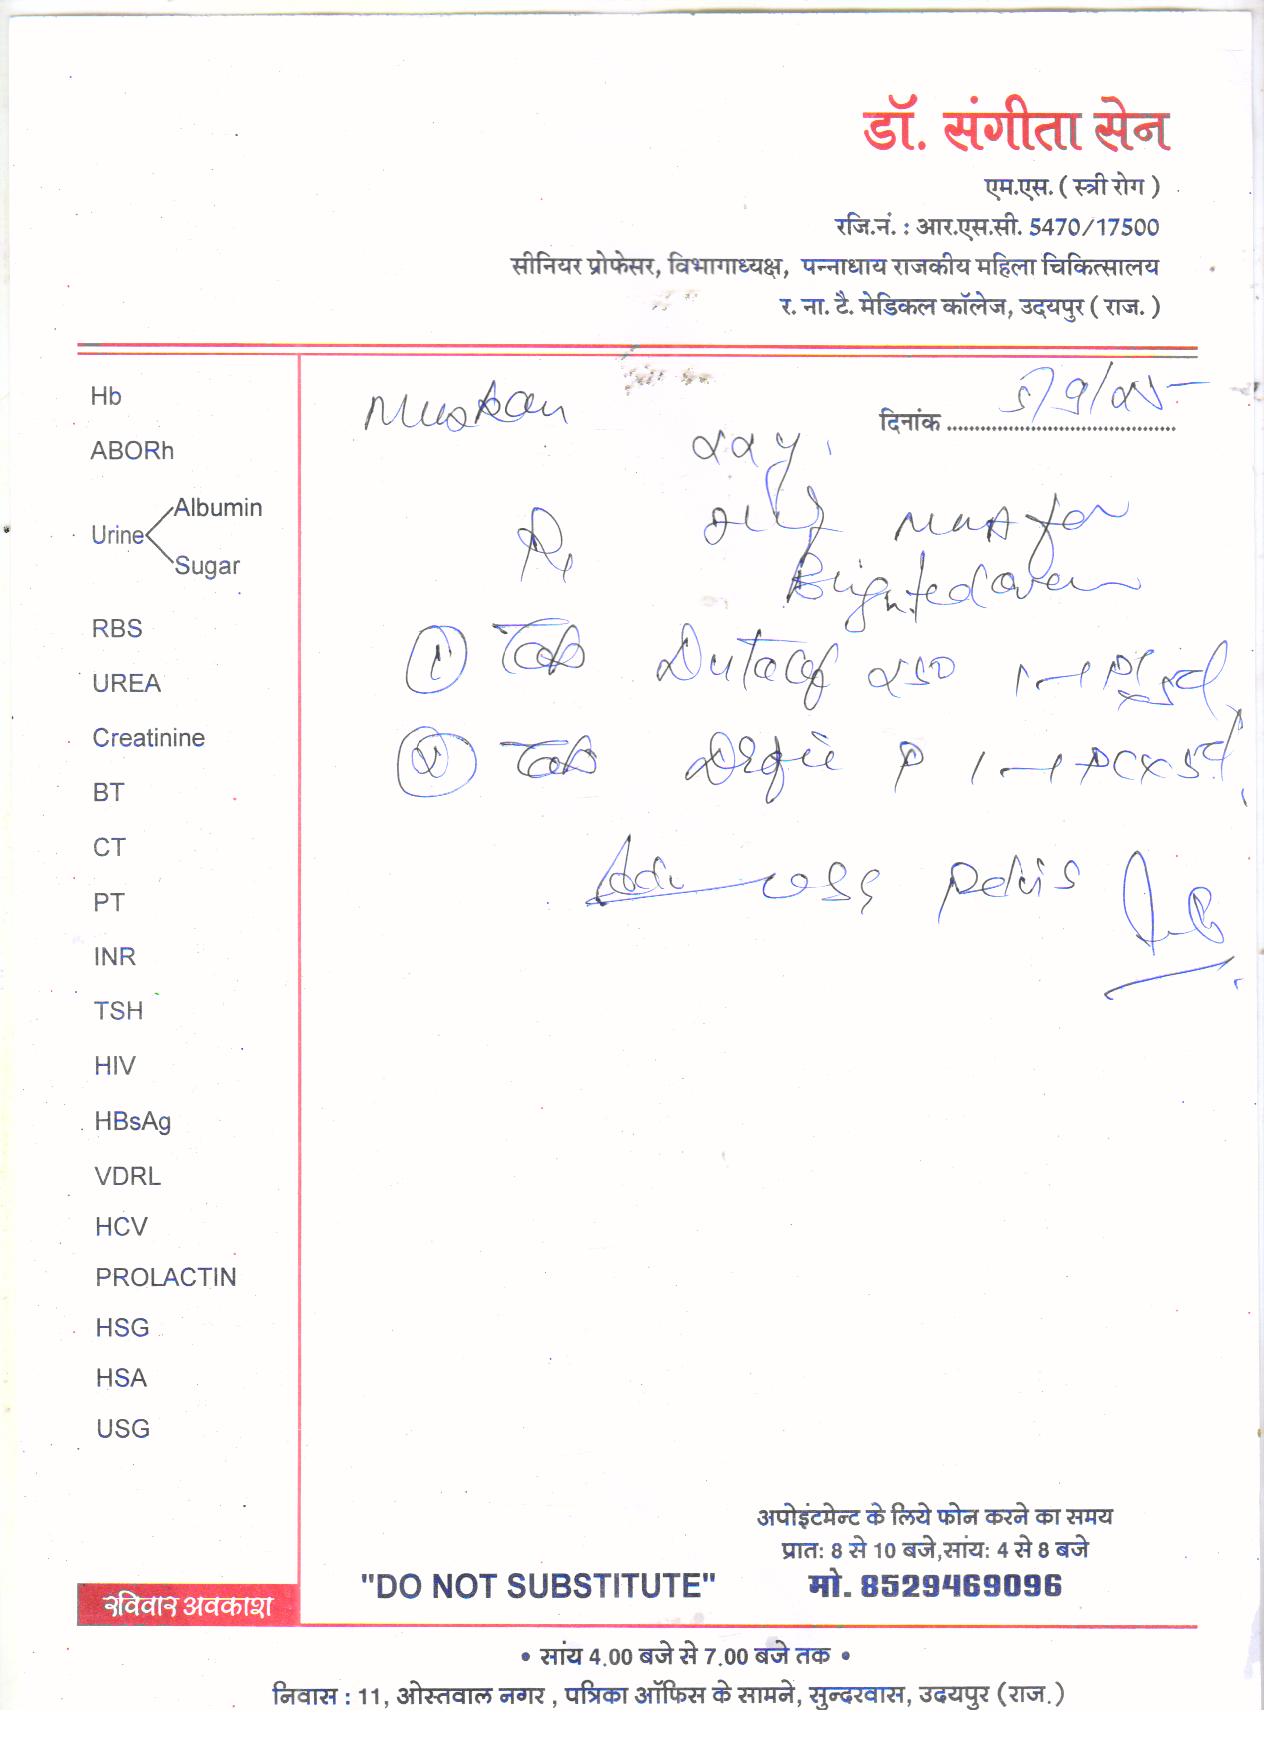 डॉ. संगीता सेन
एम.एस. ( स्त्री रोग )
रजि.नं. : आर.एस.सी. 5470/17500
सीनियर प्रोफेसर, विभागाध्यक्ष, पन्नाधाय राजकीय महिला चिकित्सालय
र. ना. टै. मेडिकल कॉलेज, उदयपुर ( राज. )
Muskan
दिनांक
22y
Rx
1 Tab 250
2 Tab P
Adv pelvis
Hb
ABORh
Urine Albumin
Sugar
RBS
UREA
Creatinine
BT
CT
PT
INR
TSH
HIV
HBsAg
VDRL
HCV
PROLACTIN
HSG
HSA
USG
अपोइंटमेन्ट के लिये फोन करने का समय
प्रातः 8 से 10 बजे,सांयः 4 से 8 बजे
"DO NOT SUBSTITUTE" मो. 8529469096
रविवार अवकाश
• सांय 4.00 बजे से 7.00 बजे तक •
निवास : 11, ओस्तवाल नगर , पत्रिका ऑफिस के सामने, सुन्दरवास, उदयपुर (राज.)